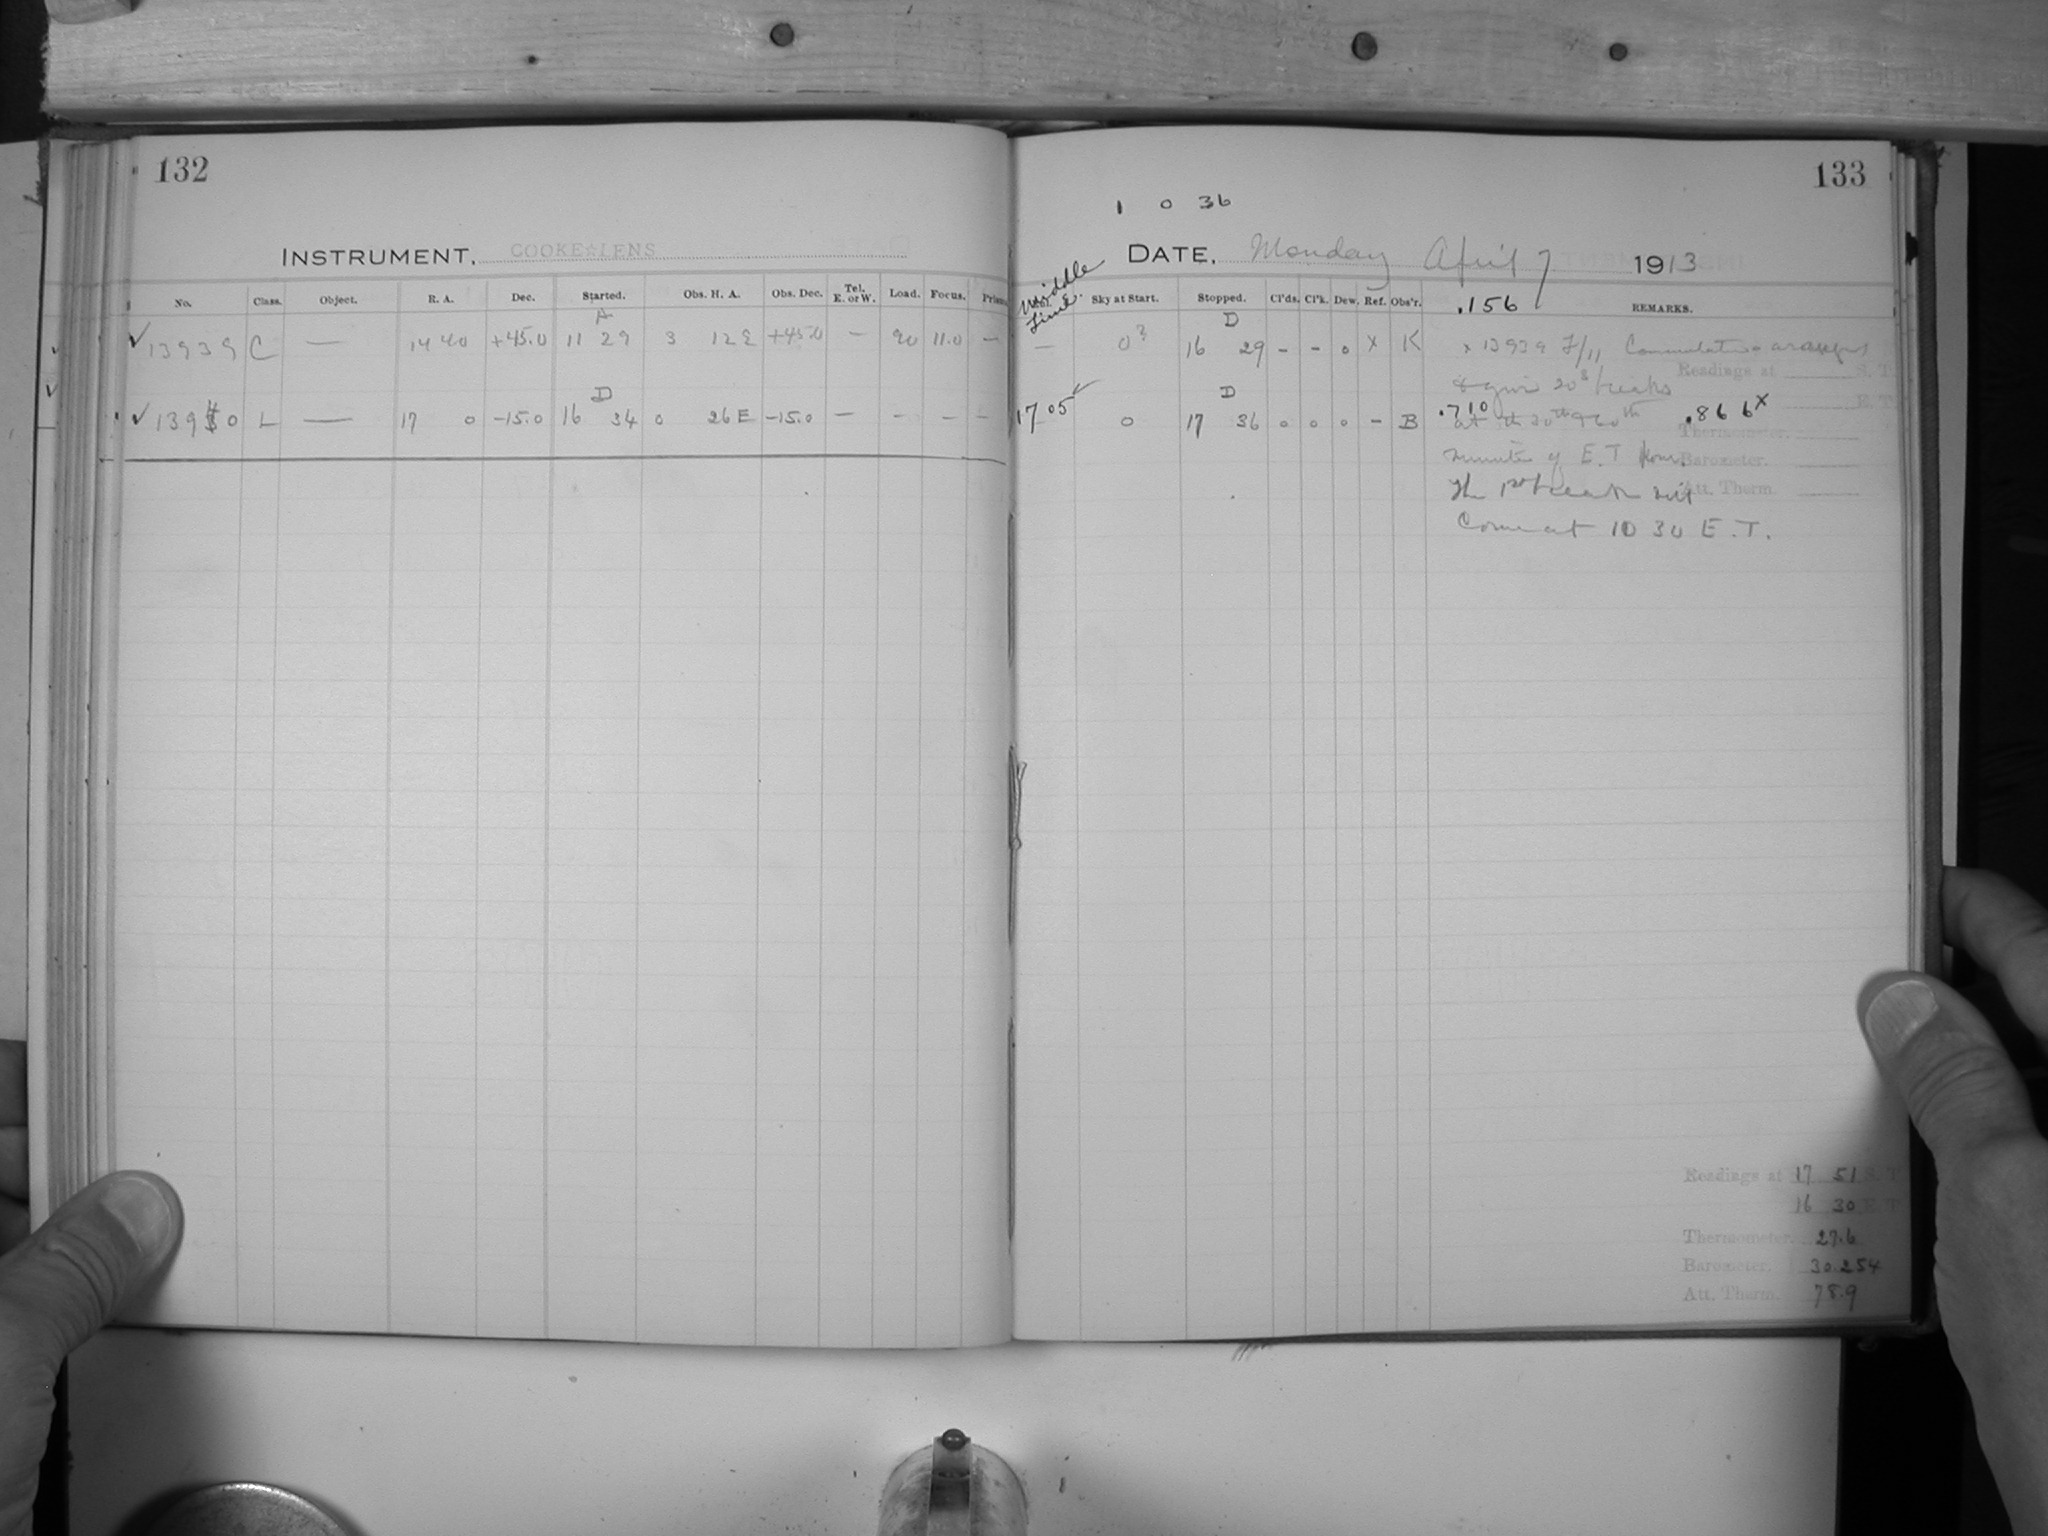 132
INSTRUMENT. COOKE☆LENS
No. Class. Object. R. A. Dec. Started. Obs. H. A. Obs. Dec. Tel. E. or W. Load. Focus.
A
✓ 13939 C — 14 40 +45.0 11 29 3 12 E +45.0 — 90 11.0 —
D
✓ 13940 L — 17 0 -15.0 16 34 0 26 E -15.0 — - - -
133
1 0 36
DATE. Monday April 7 1913
Middle Time.
Sky at Start. Stopped. Cl'ds. Cl'k. Dew. Ref. Obs'r. .156 REMARKS.
D
— 0? 16 29 - - 0 x K x 13939 F/11 Commutator arranged
Readings at S. T.
to give 20s breaks
E. T.
D
17 05 ✓ 0 17 36 0 0 0 - B .710 .866x
at the 30th & 60th
Thermometer.
minute of E.T hour.
Barometer.
The 1st break will
Att. Therm.
Come at 10 30 E.T.
Readings at 17 51 S. T.
16 30 E. T.
Thermometer. 27.6
Barometer. 30.254
Att. Therm. 78.9